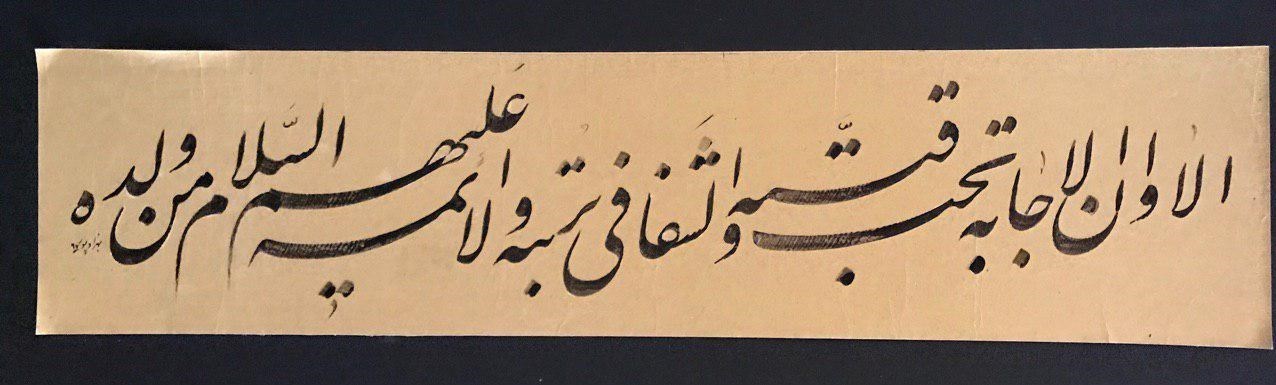 الا وان الاجابه تحت قبّته والشفا فی تربته والائمه علیهم السّلام من ولده